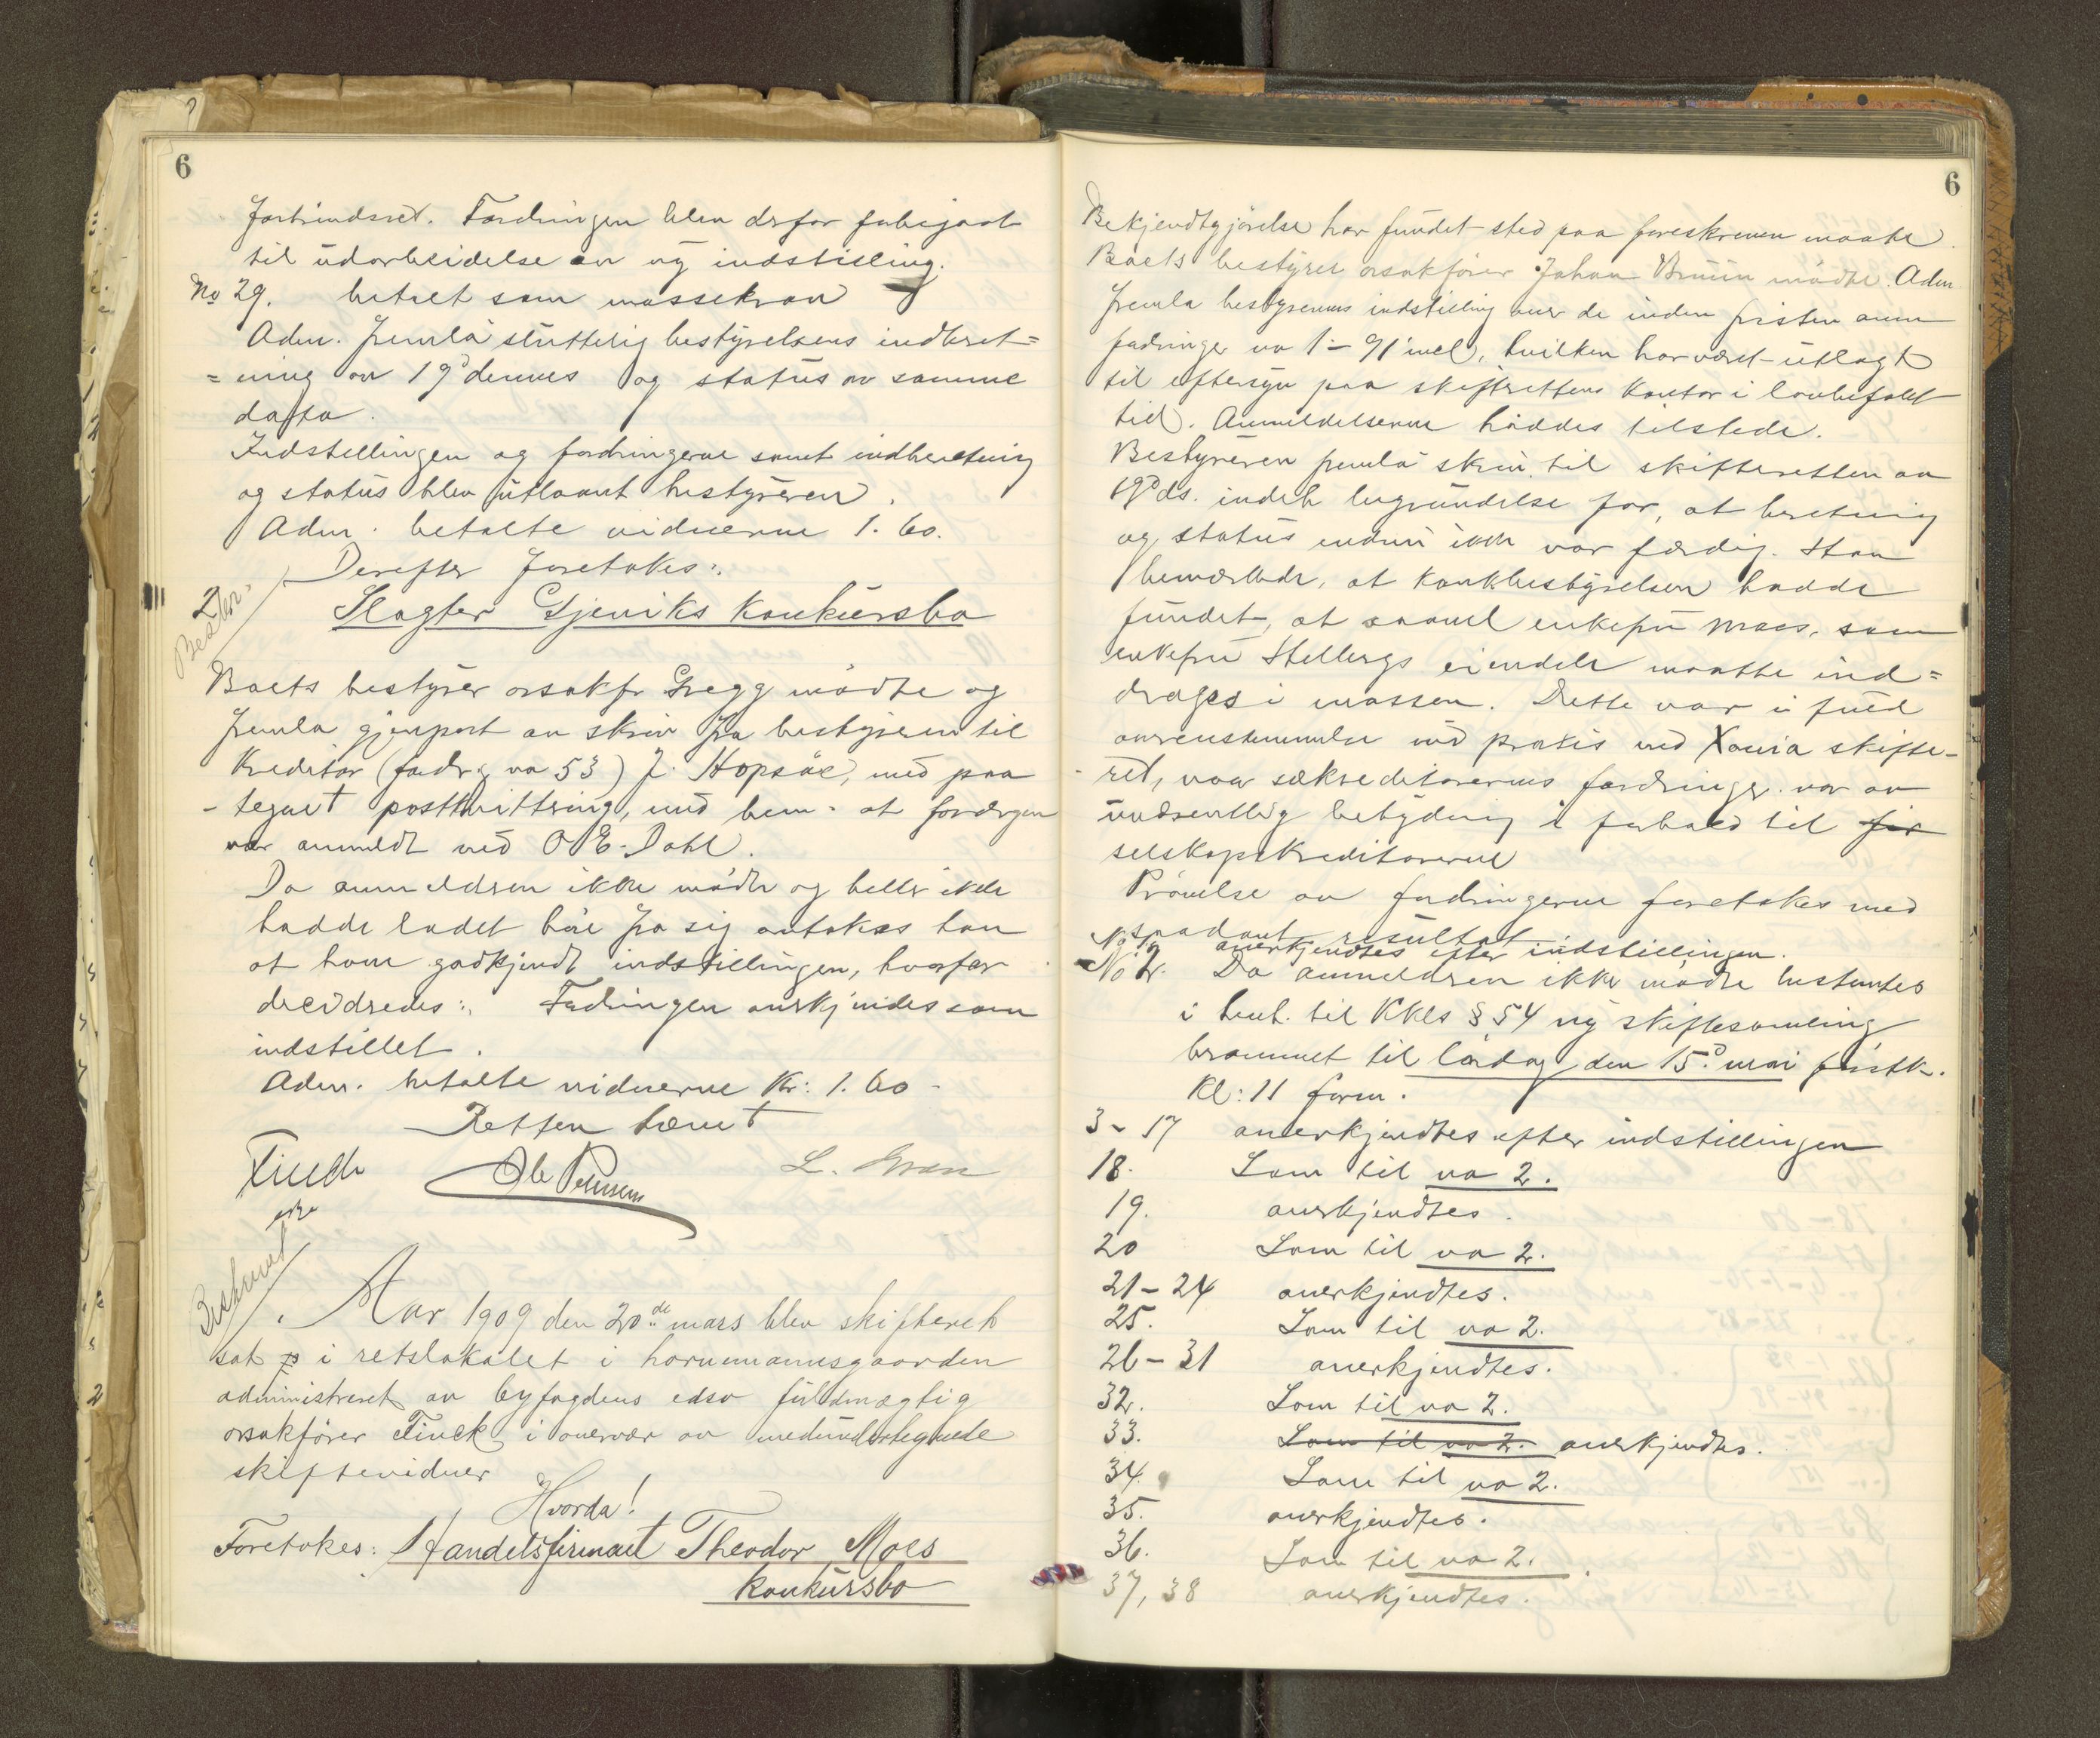 6
fortrinsret. Fordringen blev drfor
til udarbeidelse av ny indstilling.
No 29. betalt som massekrav
Adm. fremla sluttelig bestyrelsens indberet=
=ning av 19d dennes og status av samme
dato.
Indstillingen og fordringerne samt indberetning
og status blev utlaant bestyreren.
Adm. betalte vidnerne 1.60.
Derefter foretokes:
2
Slagter Gjeviks konkursbo
Boets bestyrer orsakfr Gregg mødte og
fremla gjenpart av skriv fra bestyreren til
Kreditor (fordr. no 53) J. Hopsåe, med paa
-tegnet postkvittring, med bem. at fordrgen
var anmeldt ved O. E. Dahl.
Da anmeldren ikke mødte og heller ikke
hadde ladet høre fra sig antokes han
at have godkjendt indstillingen, hvorfor
decidredes: Fordringen anerkjendes som
indstillet.
Adm. betalte vidnerne Kr: 1.60-
Retten hævet
Finck Ole Pedersen L.
Aar 1909 den 20de mars blev skifteret
sat i retslokalet i hornemannsgaarden
administreret av byfogdens edsv fuldmægtig
orsakfører Finck i overvær av medundertegnede
skiftevidner
Hvorda!
Foretokes: Handelsfirmaet Theodor Moes
konkursbo
6
Bekjendtgjørelse har fundet sted paa foreskreven maate.
Boets bestyrer orsakfører Johan Bruun mødte. Adm.
fremla bestyrerens indstilling over de inden fristen anm
fordringer no 1-91 incl, hvilken har været utlagt
til eftersyn paa skifterettens kontor i lovbefalet
tid. Anmeldelserne haddes tilstede.
Bestyreren fremla skriv til skifteretten av
19d ds. indeh begrundelse for, at beretning
og status endnu ikke var færdig. Han
bemærkede, at konkbestyrelsen hadde
fundet, at saavel enkefru Moes, som
enkefru Stellergs eiendele maatte ind=
drages i massen. Dette var i fuld
overensstemmelse med praxis ved Xania skifte-
-ret, naar særkreditorernes fordringer var av
uvæsentlig betydning i forhold til for
selskapskreditorerne
Prøvelse av fordringerne foretokes med
saadant resultat
No 1. anerkjendtes efter indstillingen.
No 2. Da anmeldren ikke mødte bestemtes
i henh. til Kkls § 54 ny skiftesamling
berammet til lørdag den 15d mai førstk.
Kl: 11 form.
3-17 anerkjendtes efter indstillingen
18. Som til no 2.
19. anerkjendtes.
20 Som til no 2.
21-24 anerkjendtes.
25. Som til no 2.
26-31 anerkjendtes.
32. Som til no 2.
33. Som til no 2. anerkjendtes.
34. Som til no 2.
35. anerkjendtes.
36. Som til no 2.
37, 38 anerkjendtes.